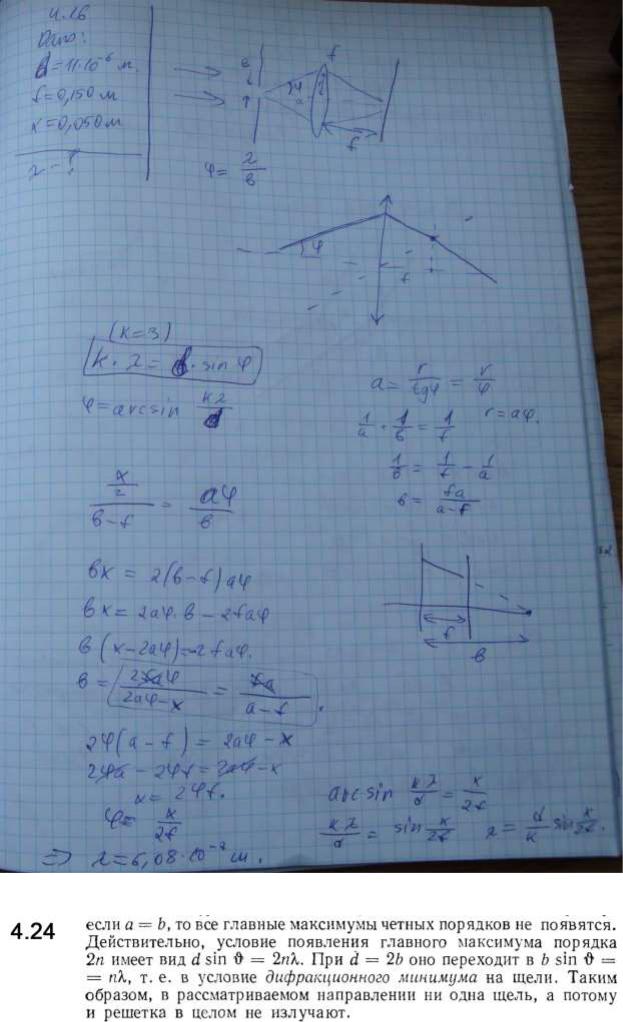 4.26
Дано:
b = 11·10⁻⁶ м.
f = 0,150 м
x = 0,050 м
λ - ?
φ = λ/b
f
φ
f
(k=3)
k·λ = d·sin φ
φ = arcsin kλ/d
a = r/tgφ = r/φ
1/a + 1/b = 1/f r = aφ.
1/b = 1/f - 1/a
b = fa/(a-f)
(x/2)/(b-f) = aφ/b
bx = 2(b-f)aφ
bx = 2aφ·b - 2faφ
b(x-2aφ) = -2faφ.
b = 2faφ/(2aφ-x) = fa/(a-f).
f
b
2φ(a-f) = 2aφ - x
2φa - 2φf = 2aφ - x
x = 2φf.
φ = x/2f
arcsin kλ/d = x/2f
kλ/d = sin x/2f λ = d/k sin x/2f.
=> λ = 6,08·10⁻⁷ м.
4.24
если a = b, то все главные максимумы четных порядков не появятся.
Действительно, условие появления главного максимума порядка
2n имеет вид d sin ϑ = 2nλ. При d = 2b оно переходит в b sin ϑ =
= nλ, т. е. в условие дифракционного минимума на щели. Таким
образом, в рассматриваемом направлении ни одна щель, а потому
и решетка в целом не излучают.